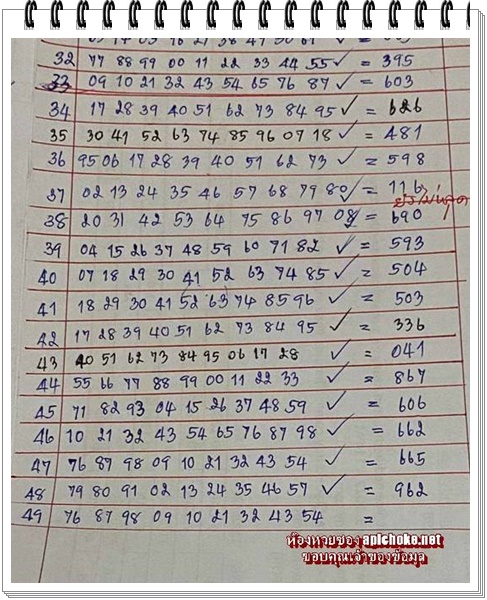 32 77 88 99 00 11 22 33 44 55 ✓ = 395
33 09 10 21 32 43 54 65 76 87 ✓ = 603
34 17 28 39 40 51 62 73 84 95 ✓ = 626
35 30 41 52 63 74 85 96 07 18 ✓ = 481
36 95 06 17 28 39 40 51 62 73 ✓ = 598
37 02 13 24 35 46 57 68 79 80 ✓ = 116
38 20 31 42 53 64 75 86 97 08 ✓ = 690
39 04 15 26 37 48 59 60 71 82 ✓ = 593
40 07 18 29 30 41 52 63 74 85 ✓ = 504
41 18 29 30 41 52 63 74 85 96 ✓ = 503
42 17 28 39 40 51 62 73 84 95 ✓ = 336
43 40 51 62 73 84 95 06 17 28 ✓ = 041
44 55 66 77 88 99 00 11 22 33 ✓ = 867
45 71 82 93 04 15 26 37 48 59 ✓ = 606
46 10 21 32 43 54 65 76 87 98 ✓ = 662
47 76 87 98 09 10 21 32 43 54 ✓ = 665
48 79 80 91 02 13 24 35 46 57 ✓ = 962
49 76 87 98 09 10 21 32 43 54 =
ห้องหวยซอง apichoke.net
ขอบคุณเจ้าของข้อมูล